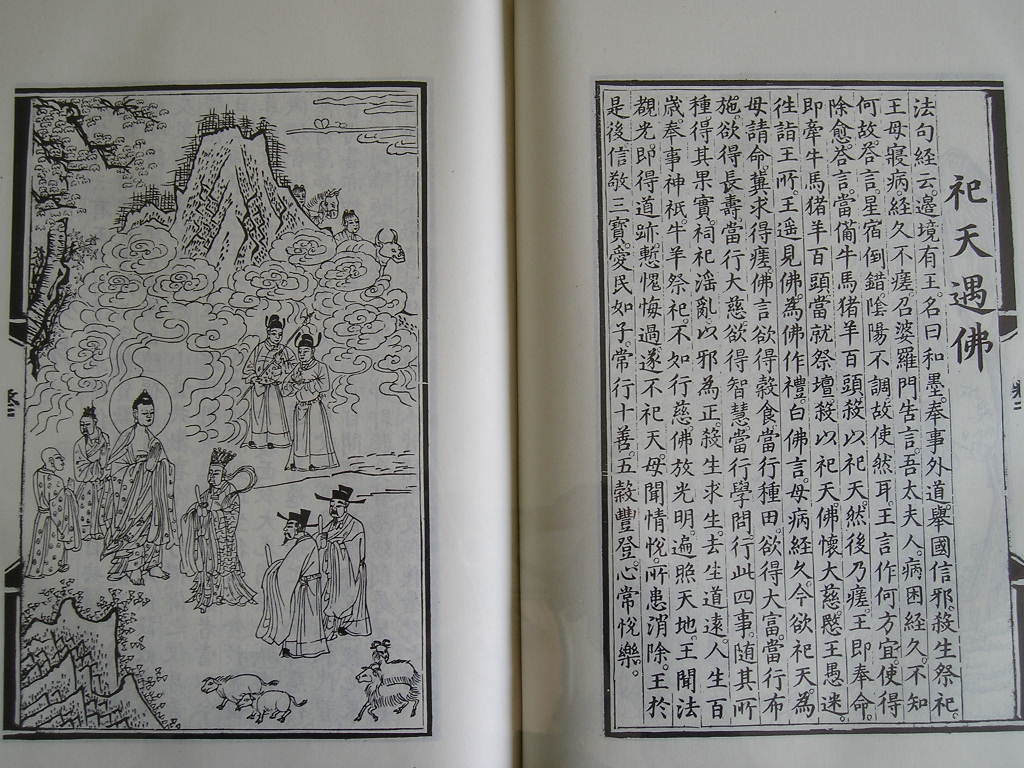 祀天遇佛
法句經云。邊境有王。名曰和墨。奉事外道。舉國信邪。殺生祭祀。
王母寢病。經久不瘥。召婆羅門告言。吾太夫人。病困經久。不知
何故。答言。星宿倒錯。陰陽不調。故使然耳。王言作何方宜。使得
除愈。答言。當備牛馬猪羊百頭。殺以祀天。然後乃瘥。王即奉命。
即牽牛馬猪羊百頭。當就祭壇。殺以祀天。佛懷大慈。愍王愚迷。
往詣王所。王遥見佛。為佛作禮。白佛言。母病經久。今欲祀天。為
母請命。冀求得瘥。佛言欲得穀食。當行種田。欲得大富。當行布
施。欲得長壽。當行大慈。欲得智慧。當行學問。行此四事。隨其所
種得其果實。祠祀滛亂。以邪為正。殺生求生。去生道遠。人生百
歲。奉事神祇。牛羊祭祀。不如行慈。佛放光明。遍照天地。王聞法
觀光。即得道跡。慙愧悔過。遂不祀天。母聞情悅。所患消除。王於
是後。信敬三寶。愛民如子。常行十善。五穀豐登。心常悅樂。